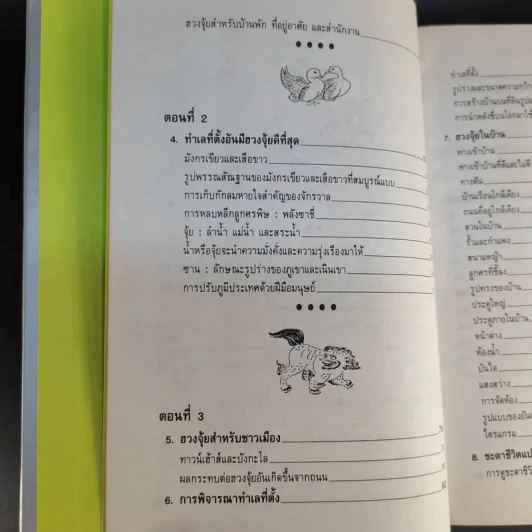 ฮวงจุ้ยสำหรับบ้านพัก ที่อยู่อาศัย และสำนักงาน
ตอนที่ 2
4. ทำเลที่ตั้งอันมีฮวงจุ้ยดีที่สุด
มังกรเขียวและเสือขาว
รูปพรรณสัณฐานของมังกรเขียวและเสือขาวที่สมบูรณ์แบบ
การเก็บกักลมหายใจสำคัญของจักรวาล
การหลบหลีกลูกศรพิษ : พลังชาชี่
จุ้ย : ลำน้ำ แม่น้ำ และสระน้ำ
น้ำหรือจุ้ยจะนำความมั่งคั่งและความรุ่งเรืองมาให้
ซาน : ลักษณะรูปร่างของภูเขาและเนินเขา
การปรับภูมิประเทศด้วยฝีมือมนุษย์
ตอนที่ 3
5. ฮวงจุ้ยสำหรับชาวเมือง
ทาวน์เฮ้าส์และบังกะโล
ผลกระทบต่อฮวงจุ้ยอันเกิดขึ้นจากถนน
6. การพิจารณาทำเลที่ตั้ง
ทำเลที่ตั้ง
รูปร่างและขนาดความกว้าง
การสร้างบ้านบนที่ดินรูป
การนำพลังชี่บนโลกมาใช้
7. ฮวงจุ้ยในบ้าน
ทางเข้าบ้าน
ทางเข้าบ้านที่ดีและไม่ดี
ทางตัน
บ้านเรือนใกล้เคียง
ถนนที่อยู่ใกล้เคียง
สวนในบ้าน
รั้วและกำแพง
สนามหญ้า
ลูกศรที่ชี้ลง
รูปทรงของบ้าน
ประตูใหญ่
ประตูภายในบ้าน
หน้าต่าง
ห้องน้ำ
บันได
แสงสว่าง
การจัดห้อง
รูปแบบของยัน
ไตรแกรม
8. ชะตาชีวิตแป
การดูชะตาชีวิ